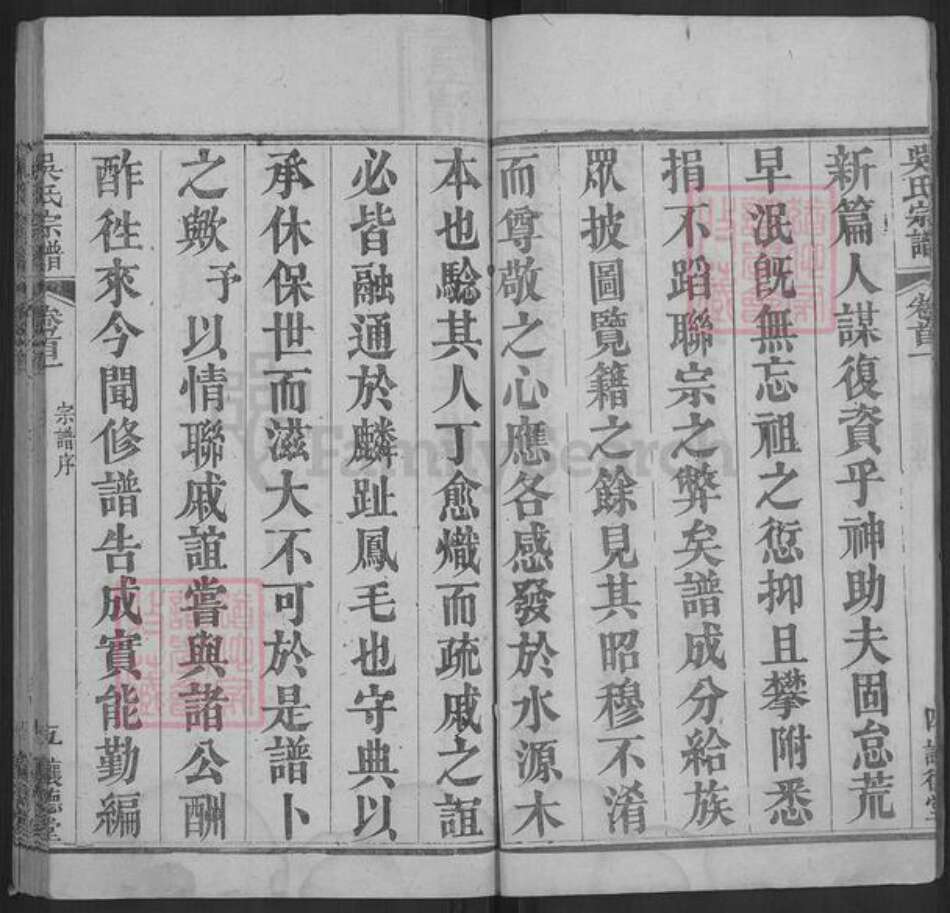 吳氏宗譜
卷首一
新篇人謀復資乎神助夫固怠荒
早泯旣無忘祖之愆抑且攀附悉
捐不蹈聯宗之弊矣譜成分給族
眾披圖覽籍之餘見其昭穆不淆
而尊敬之心應各感發於水源木
本也騐其人丁愈熾而疏戚之誼
必皆融通於麟趾鳳毛也守典以
承休保世而滋大不可於是譜卜
之歟予以情聯戚誼嘗與諸公酬
酢徃來今聞修譜告成實能勤編
吳氏宗譜
卷首一
宗譜序
五
讓德堂
FamilySearch